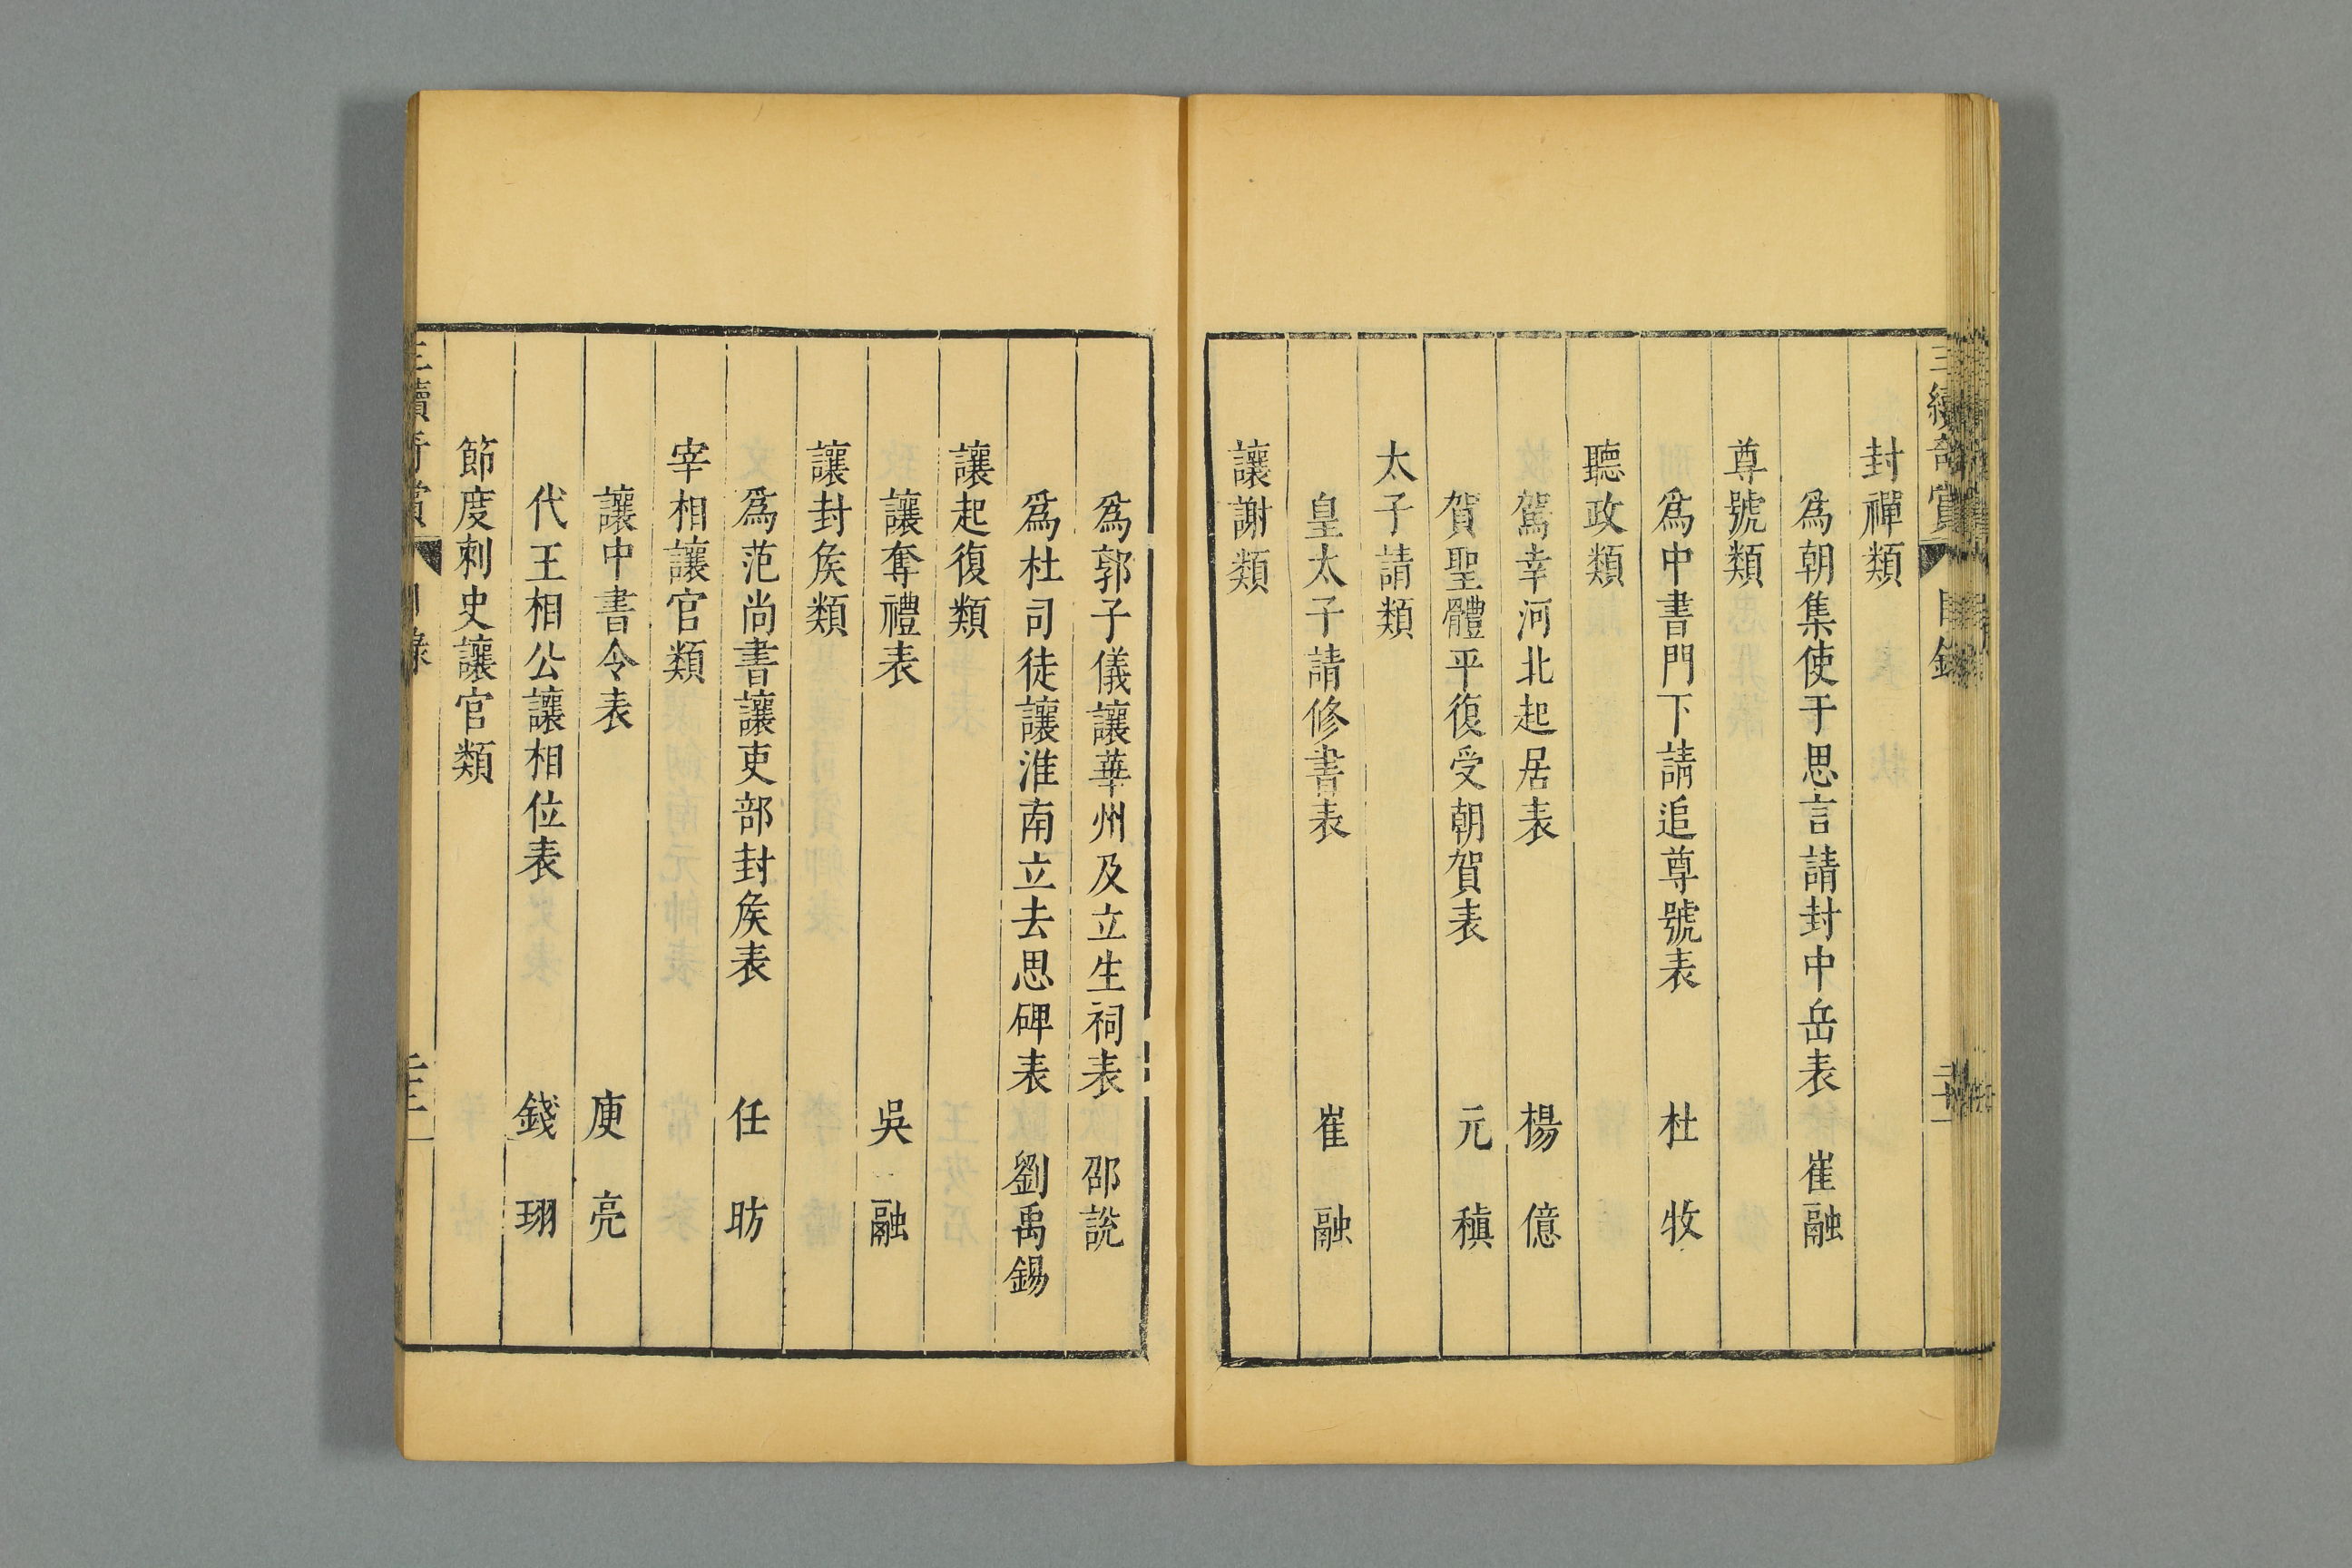 封禪類
爲朝集使于思言請封中岳表 崔融
尊號類
爲中書門下請追尊號表 杜牧
聽政類
駕幸河北起居表 楊億
賀聖體平復受朝賀表 元稹
太子請類
皇太子請修書表 崔融
讓謝類
爲郭子儀讓華州及立生祠表 邵說
爲杜司徒讓淮南立去思碑表 劉禹錫
讓起復類
讓奪禮表 吳融
讓封矦類
爲范尚書讓吏部封矦表 任昉
宰相讓官類
讓中書令表 庾亮
代王相公讓相位表 錢珝
節度刺史讓官類